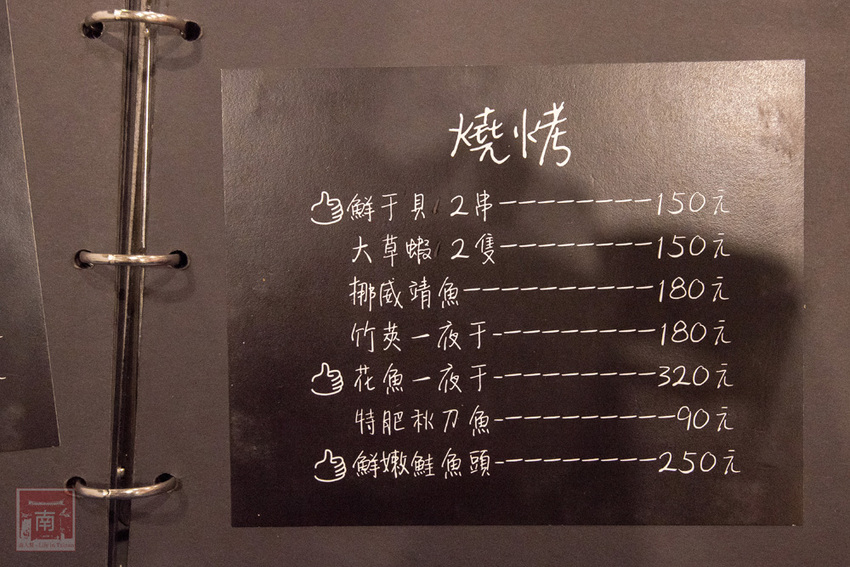 燒烤
鮮干貝 2串---------150元
大草蝦 2隻---------150元
挪威鯖魚-----------180元
竹莢一夜干---------180元
花魚一夜干---------320元
特肥秋刀魚----------90元
鮮嫩鮭魚頭---------250元
南